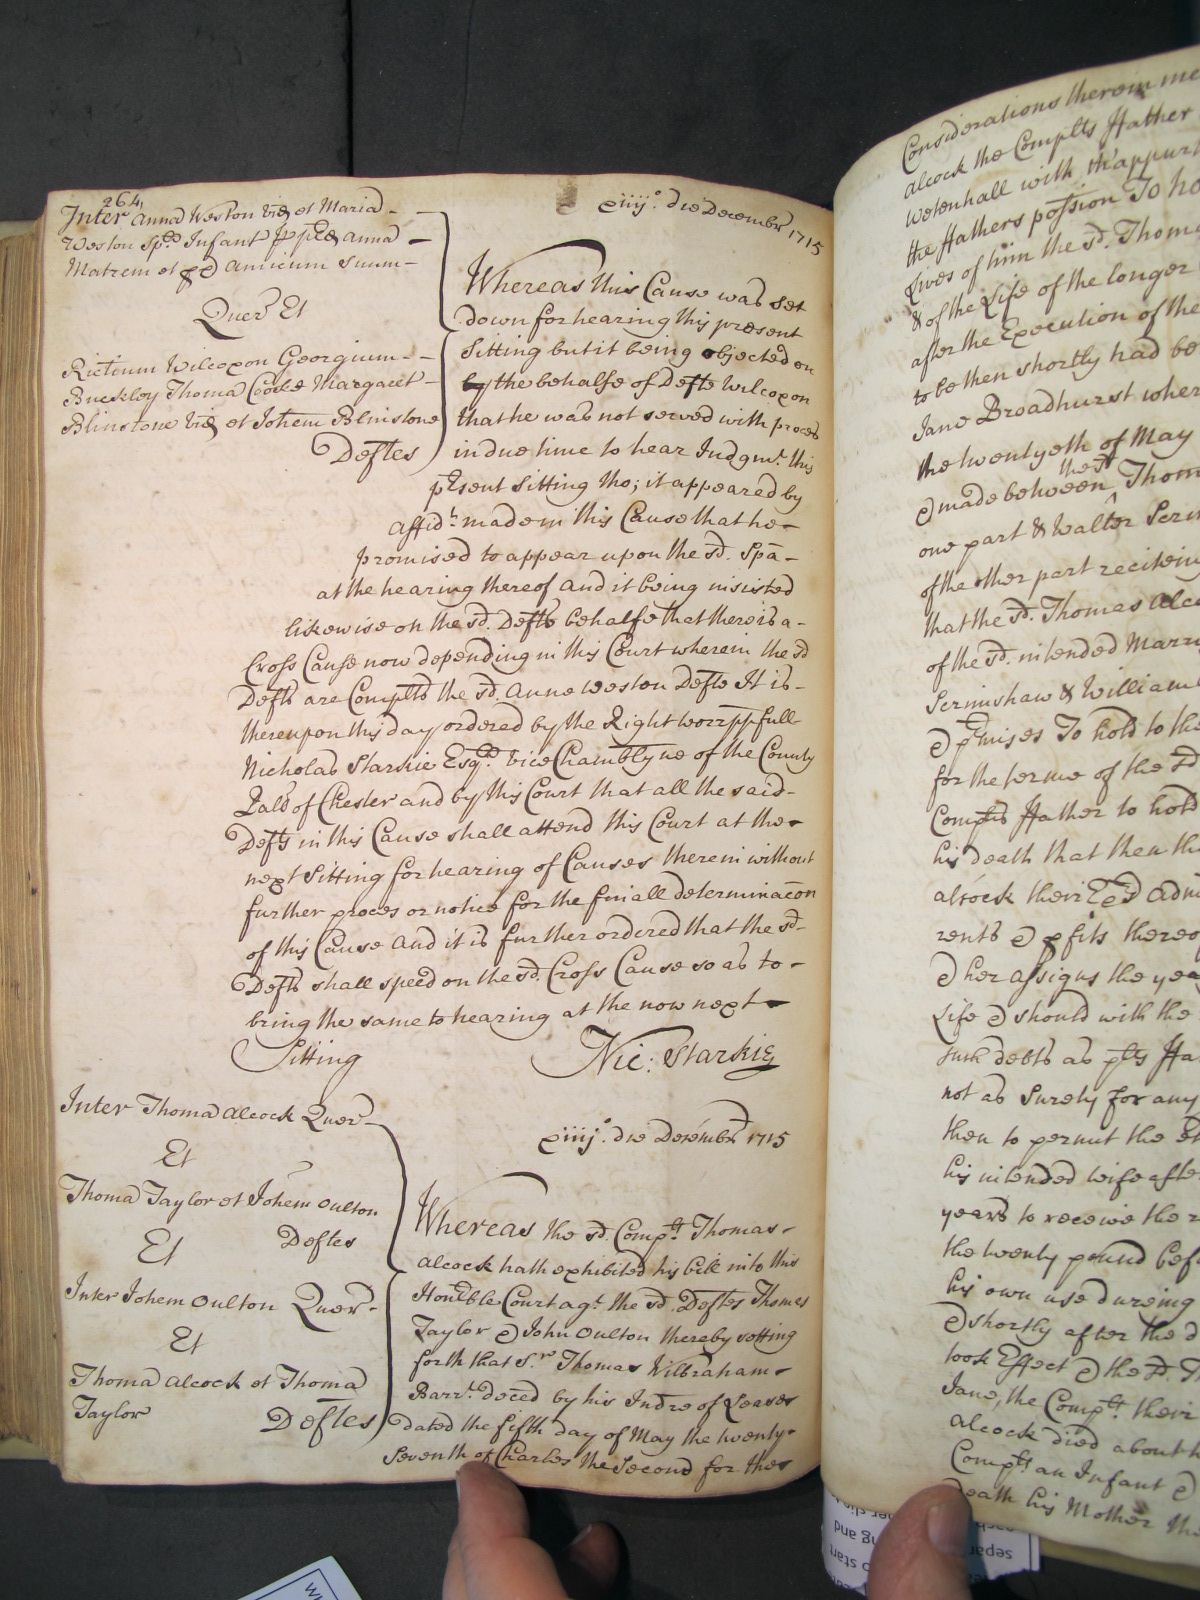 264,
Inter Anna Weston vid et Maria
Weston Spr Infant p pred Anna
Matrem et amicum suum
Quer Et
Rictum Wilcoxon Georgium
Buckley Thoma Coole Margaret
Blinstone vid et Johem Blinstone
Deftes
xiiij.° die Decembr 1715
Whereas this Cause was set
down for hearing this present
Sitting but it being objected on
by the behalfe of Defte Wilcoxon
that he was not served with proces
in due time to hear Judgmt. this
present Sitting tho; it appeared by
affidt. made in this Cause that he
promised to appear upon the sd. Spa
at the hearing thereof And it being insisted
likewise on the sd. Defts behalfe that there is a
Cross Cause now depending in this Court wherein the sd
Defts are Complts the sd. Anne Weston Defte It is
thereupon this day ordered by the Right worrppfull
Nicholas Starkie Esqr. vice Chamblyne of the County
Palr of Chester and by this Court that all the said
Defts in this Cause shall attend this Court at the
next Sitting for hearing of Causes therein without
further proces or notice for the finall determinacon
of this Cause And it is further ordered that the sd.
Defts shall speed on the sd. Cross Cause so as to
bring the same to hearing at the now next
Sitting
Nic: Starkie
Inter Thoma Alcock Quer
Et
Thoma Taylor et Johem Oulton
Et Deftes
Inter Johem Oulton Quer
Et
Thoma Alcock et Thoma
Taylor Deftes
xiiij.° die Decembr 1715
Whereas the sd. Complt Thomas
Alcock hath exhibited his bill into this
Honble Court agt. the sd. Deftes Thomas
Taylor & John Oulton thereby setting
forth that Sr. Thomas Wilbraham
Barrt. deced by his Indre of Leases
dated the fifth day of May the twenty
Seventh of Charles the Second for the
Considerations therein me
Alcock the Complts ffather
Wetenhall with th'appurt
the ffathers possion To ho
Lives of him the sd. Thom
& of the Life of the longer
after the Execution of the
to be then shortly had be
Jane Broadhurst wher
the twentyeth of May
the sd
& made between ^ Thom
one part & Walter Scrim
of the other part reciteing
that the sd. Thomas Alco
of the sd. intended Marri
Scrimshaw & William
& pmises To hold to the
for the terme of the sd
Complts ffather to hold
his death that then th
Alcock their Admi
rents & pfits thereo
& her assigns the yea
Life & should with the
such debts as plts ffa
not as Surety for any
then to permit the
his intended wife afte
years to receive the r
the twenty pound bef
his own use dureing
& shortly after the d
took Effect & the sd. Th
Jane, the Complt. their
Alcock died about th
Complt an Infant &
death his Mother the